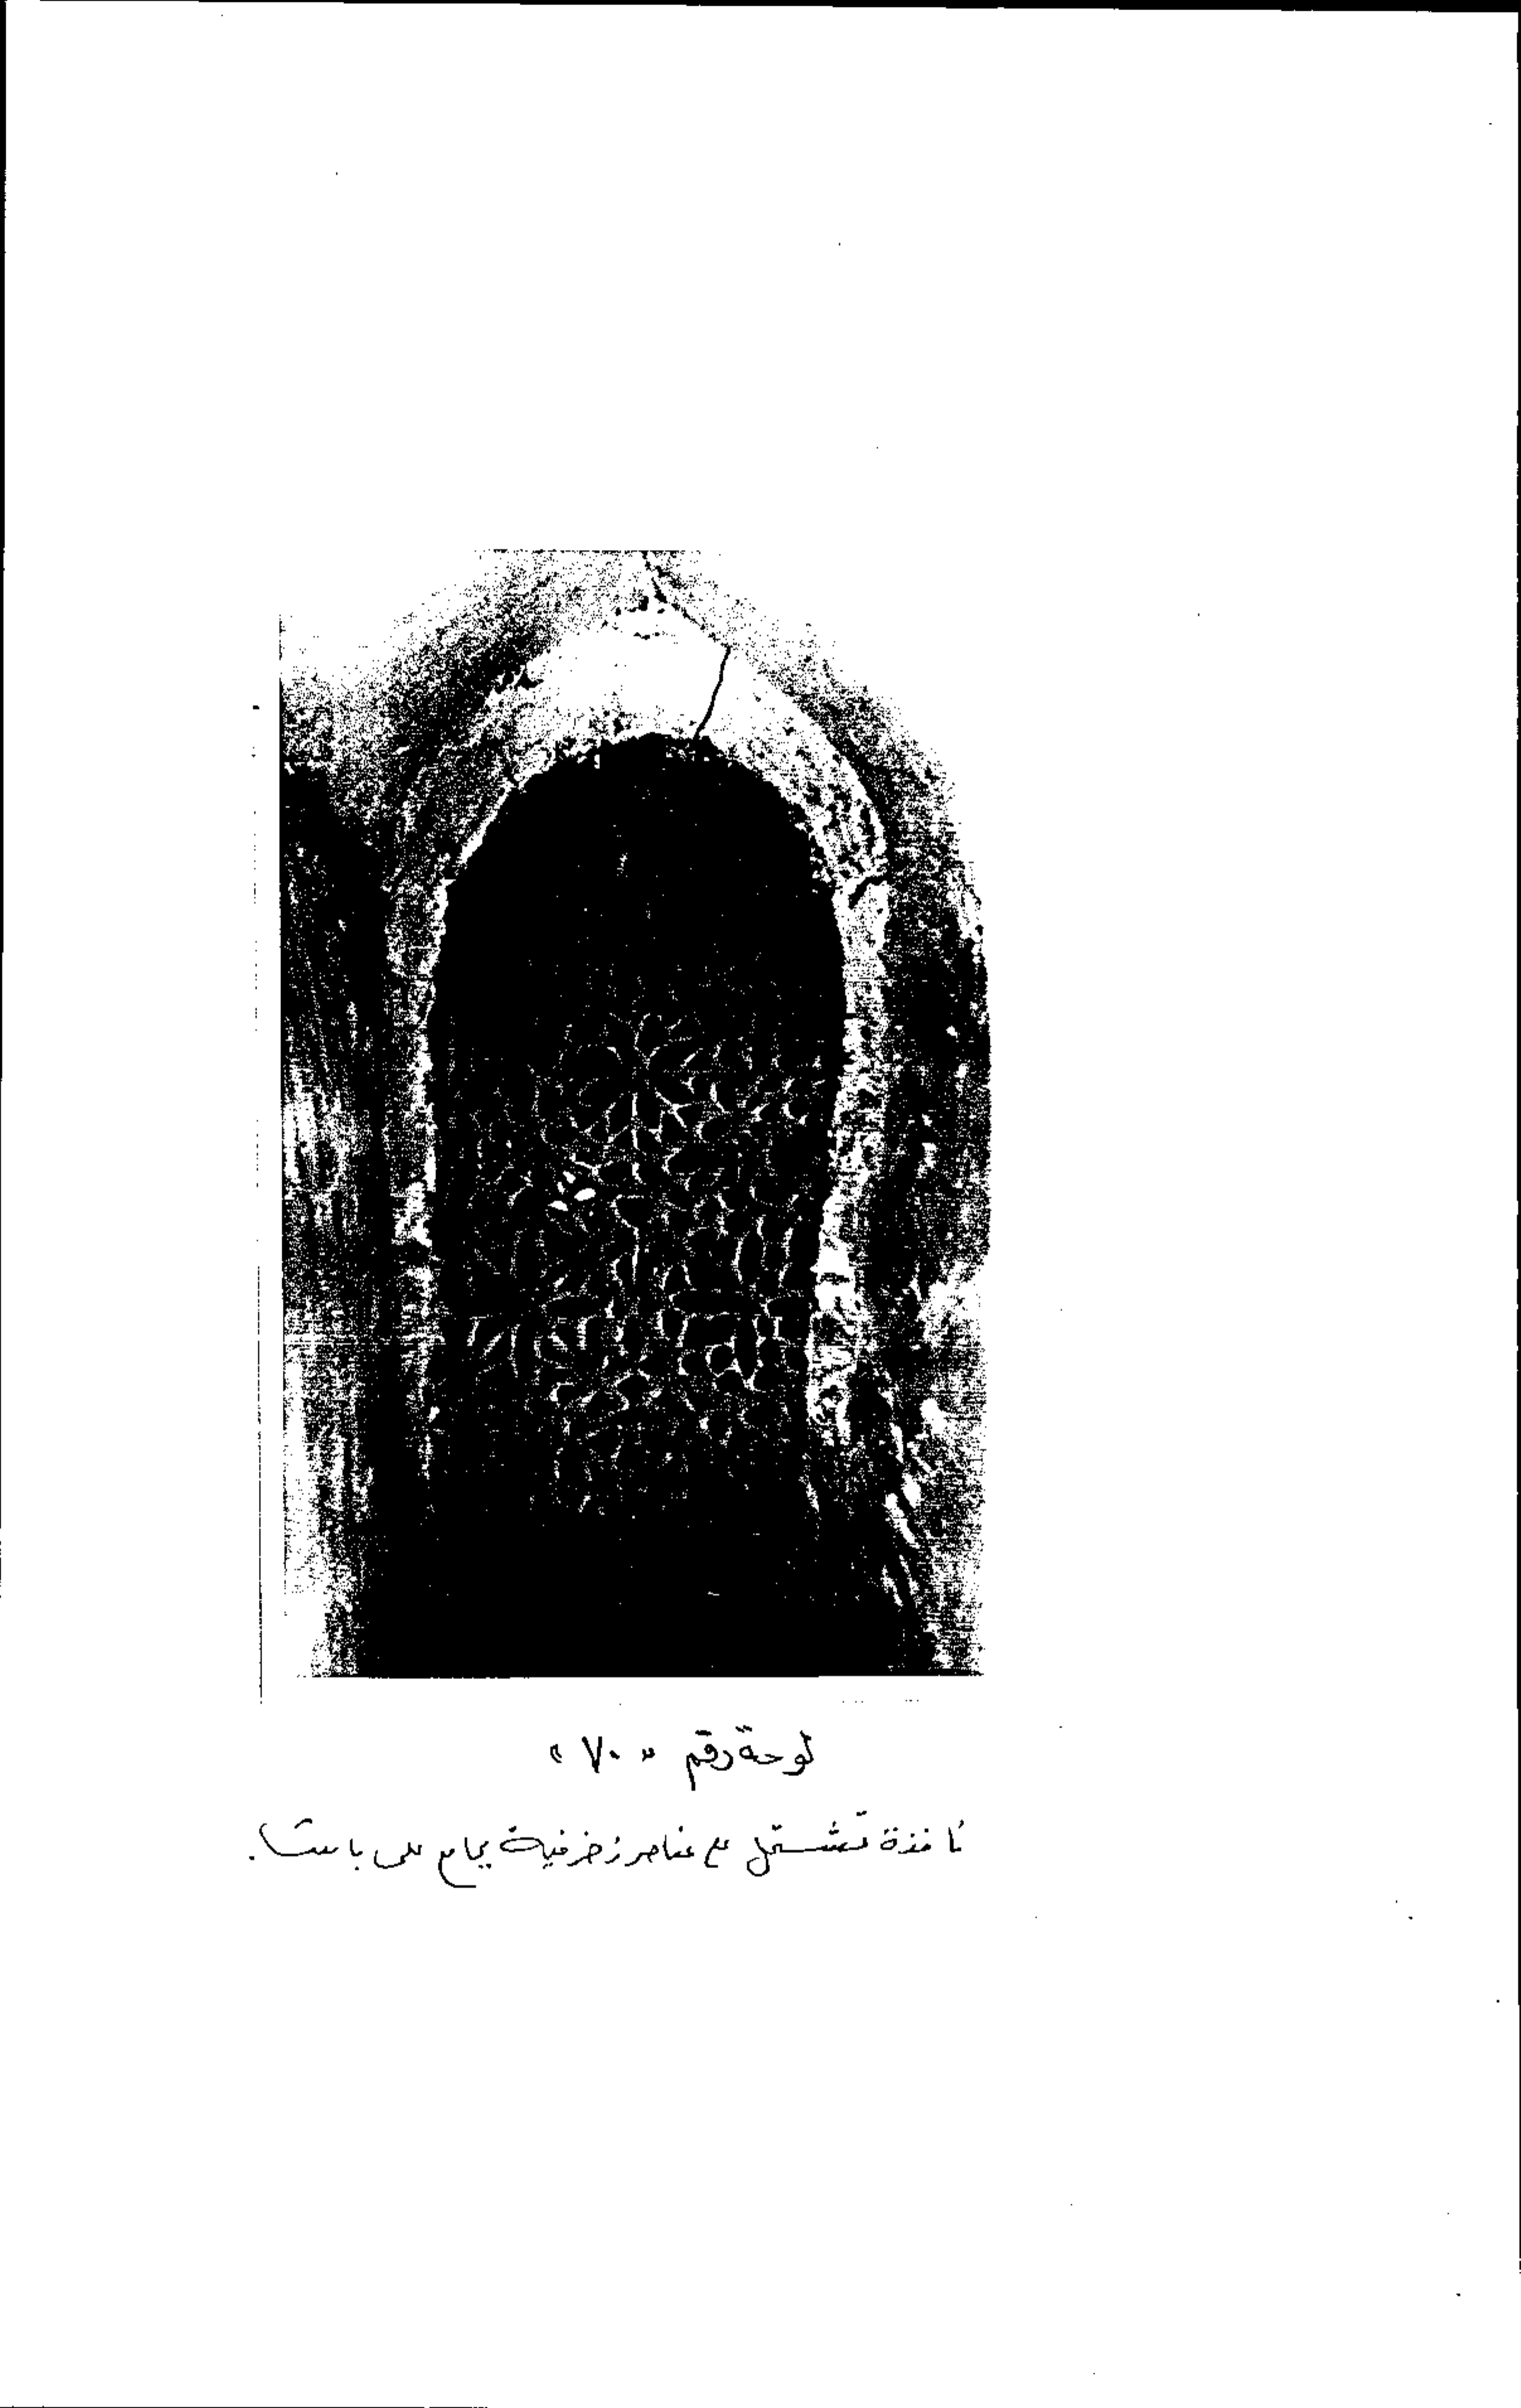 لوحة رقم « ٧٠ »
نافذة تشتمل على عناصر زخرفية بجامع على باشا.